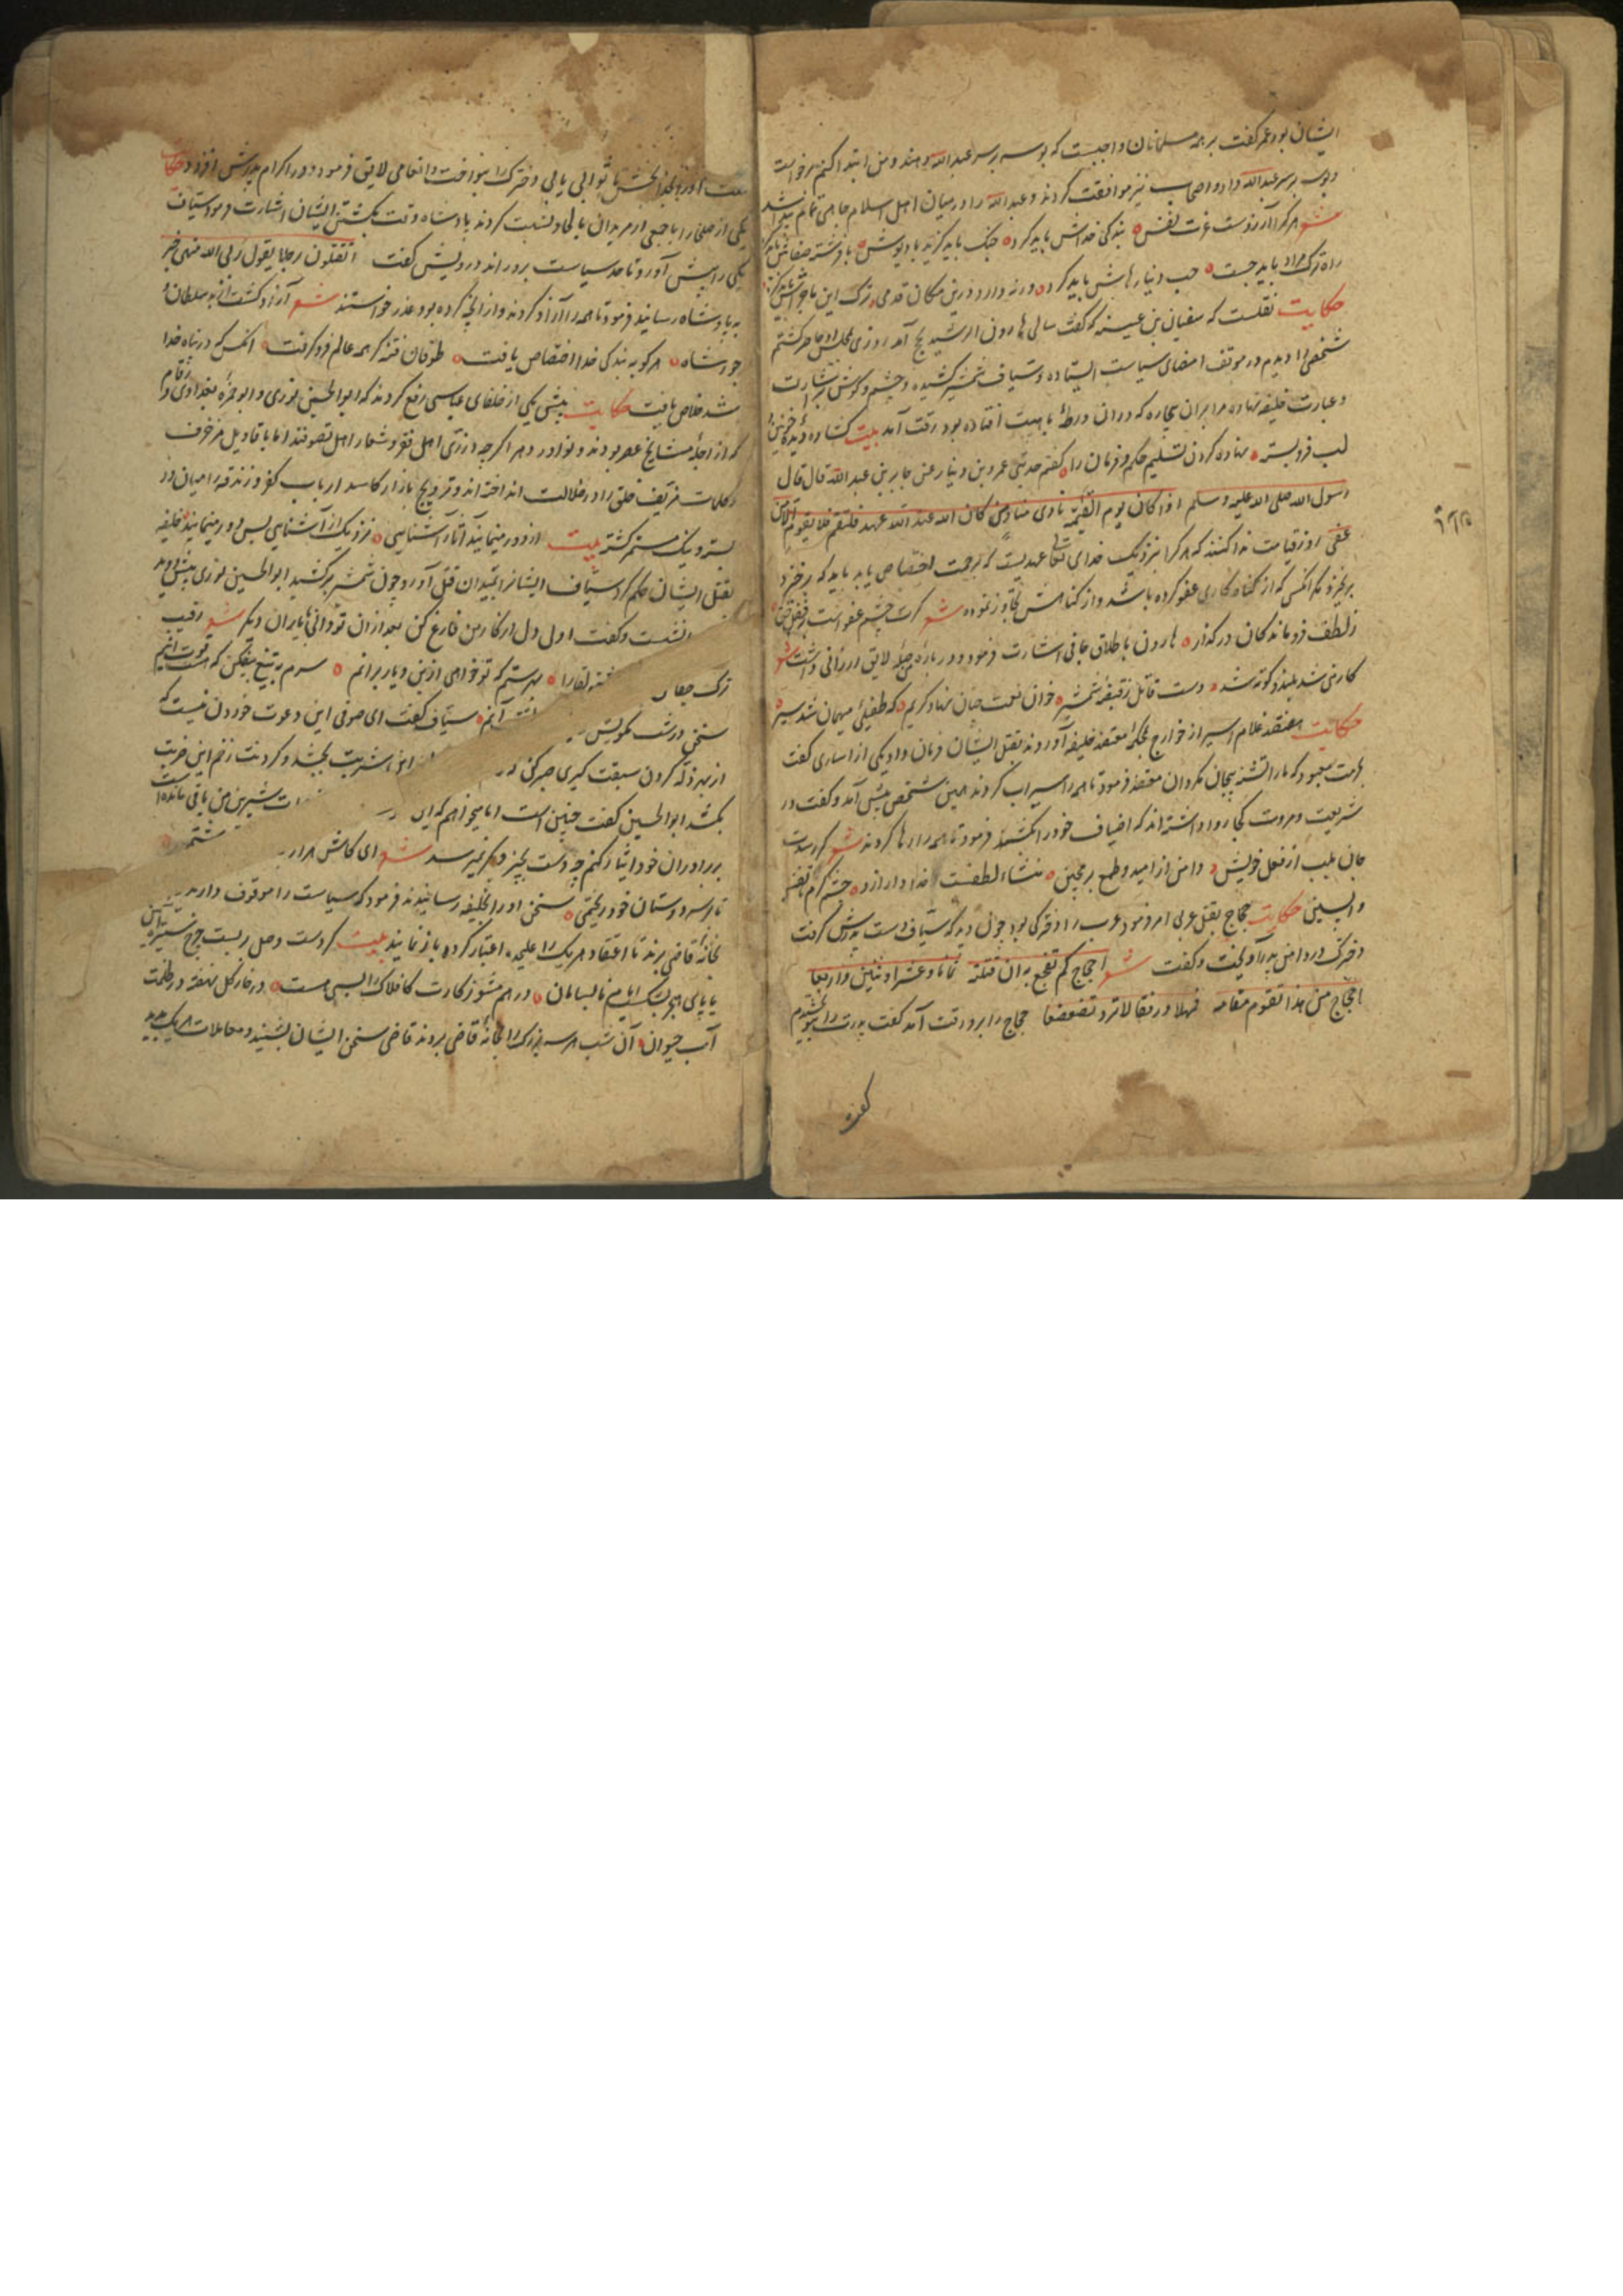 ایشان بود عمر گفت بر همه مسلمانان واجبست که بوسه بر سر عبدالله دهند و من ابتدا کنم برخواست
و بوسه بر سر عبدالله داد و اصحاب نیز موافقت کردند و عبدالله را در میان اهل اسلام جاهی تمام پیدا شد
شعر هر کرا آرزوست عزت نفس بندگی خداش باید کرد جنگ باید کزید با دیوش با فرشته صفاش باید کرد
راه ترک مراد باید جست حب دنیا رهاش باید کرد ورنه دارد درین مکان قدمی ترک این
حکایت نقلست که سفیان بن عیینه گفت سالی هارون الرشید بحج آمد روزی بمجلس او حاضر گشتم
شخصی را دیدم در موقف امضای سیاست ایستاده و سیاف شمشیر کشیده و چشم و گوش بر اشارت
و عبارت خلیفه نهاده مرا بران بیچاره که دران ورطه با هیبت افتاده بود رقت آمد بیت گشاده دیده
لب فرو بسته نهاده گردن تسلیم حکم و فرمان را گفتم حدثنی عمرو بن دینار عن جابر بن عبدالله قال قال
رسول الله صلی الله علیه وسلم اذا کان یوم القیمة نادی مناد من کان له عند الله عهد فلیقم فلا یقوم الا من
عفی روز قیامت ندا کنند که هر کرا نزدیک خدای تعالی عهدیست که برحمت اختصاص یابد باید که برخیزد
برنخیزد مگر آنکس که از گناه گاری عفو کرده باشد و از گناهش تجاوز نموده شعر گرت چشم عفو است
ز لطف فرو ماندگان درگذار هارون باطلاق جانی اشارت فرمود و درباره صله لایق ارزانی داشت شعر
کار من شد بلند و کوته شد دست قاتل ز قبضه شمشیر خوان نعمت چنان نهاد کریم که طفیلی میهمان شد سیر
حکایت هفتصد غلام اسیر از خوارج بحکم معتضد خلیفه آوردند بقتل ایشان فرمان داد یکی از اساری گفت
بحرمت معبود که ما را تشنه بیجان مگردان معتضد فرمود تا همه را سیراب کردند همین شخص پیش آمد و گفت در
شریعت و مروت کجا روا داشته اند که اضیاف خود را کشند فرمود تا همه را رها کردند شعر
جان بلب از فعل خویش دامن از امید و طمع بر مچین منشاء لطفست خدا وار ازو چشم کرم تا نفس
واپسین حکایت حجاج بقتل عربی امر فرمود عرب را دخترکی بود چون دید که سیاف دست پدرش گرفت
دخترک در دامن پدر آویخت و گفت شعر احجاج کم تفجع به ان قتلته ثمانا و عشرا و ثنین و اربعا
احجاج من هذا تقوم مقامه فمهلا و رفقا لا تزد تضعضعا حجاج را برو رقت آمد گفت پدرت را بتو بخشیدم
گفت
۲۹۵
او را بخدا بخش تا ثوابی یابی دخترک را بنواخت و انعامی لایق فرمود و در اکرام پدرش افزود حکایت
یکی از صلحا را با جمعی از مریدان بالحاد نسبت کردند پادشاه وقت بکشتن ایشان اشارت فرمود سیاف
یکی را پیش آورد تا حد سیاست برو راند درویش گفت اتقتلون رجلا یقول ربی الله منهی خبر
به پادشاه رسانید فرمود تا همه را آزاد کردند و از آنچه کرده بود عذر خواستند شعر آزاد گشت از بد سلطان و
جور شاه هر کو به بندگی خدا اختصاص یافت طوفان فتنه گر همه عالم فرو گرفت آنکس که در پناه خدا
شد خلاص یافت حکایت پیش یکی از خلفای عباسی رفع کردند که ابوالحسین نوری و ابو حمزه بغدادی و رقام را
که از اجله مشایخ عصر بودند و نوادر دهر اگرچه در زی اهل فقر و شعار اهل تصوفند اما باقاویل مزخرف
و کلمات مزیف خلق را در ضلالت انداخته اند و ترویج بازار کاسد ارباب کفر و زندقه را میان در
بسته و یک سر گشته بیت از دور مینمایند آثار آشناسی نزدیک از آشناسی بس دور مینمایند خلیفه
بقتل ایشان حکم کرد سیاف ایشانرا بمیدان قتل آورد چون شمشیر برکشید ابوالحسین نوری پیش دوید
بنشست و گفت اول دل از کار من فارغ کن بعد ازان تو دانی با یاران دیگر شعر رقیب
ترک لقا را بهر ستم که تو خواهی ازین دیار برانم سرم به تیغ بیفکن که
سخن درشت مگویش آنم سیاف گفت ای صوفی این دعوت خوردن نیست که
از بهر زله گردن سبقت گیری صبر کن شربت بچشد و گردنت زخم این ضربت
بکشد ابوالحسین گفت چنین است اما میخواهم که این شیرین من باقی مانده است
بر برادران خود ایثار کنم چو دست بچیز دیگر نمیرسد شعر ای کاش هزار
تا بر سر دوستان خود ریختمی سخن او را بخلیفه رسانیدند فرمود که سیاست را موقوف دارند
بخانه قاضی برند تا اعتقاد هر یک را علیحده اعتبار کرده باز نمایند بیت گردست وصل بربست چرخ ستیزه آیین
یا پای هجر بشکست ایام نابسامان در هم مشو ز کارت کافلاک را بسی هست در خار گل نهفته در ظلمت
آب حیوان آن شب هر سه بزرگ را بخانه قاضی بردند قاضی سخن ایشان بشنید و معاملات هر یک بدید